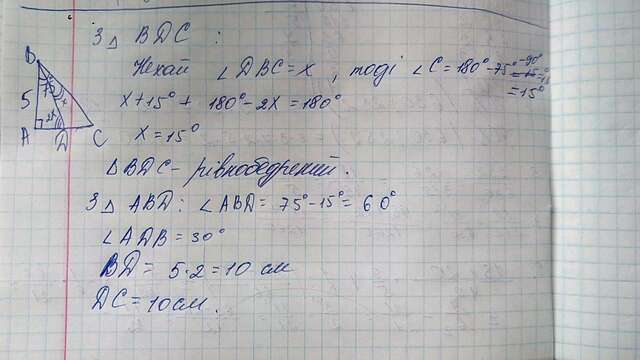 З △ BDC :
Нехай ∠DBC = x, тоді ∠C = 180° - 75° - 90°
= 15°
x + 15° + 180° - 2x = 180°
x = 15°
△ BDC - рівнобедрений.
З △ ABD : ∠ABD = 75° - 15° = 60°
∠ADB = 30°
BD = 5·2 = 10 см
DC = 10 см.
B
75°
x
5
2x
A
D
C